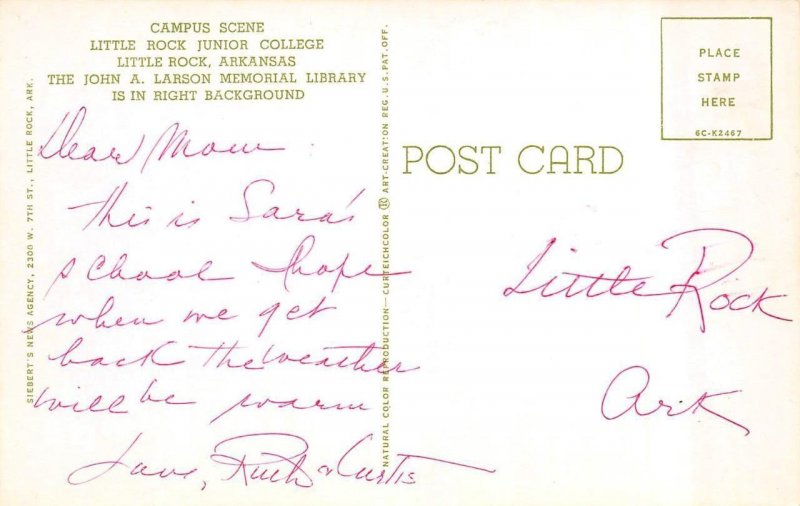 CAMPUS SCENE
LITTLE ROCK JUNIOR COLLEGE
LITTLE ROCK, ARKANSAS
THE JOHN A. LARSON MEMORIAL LIBRARY
IS IN RIGHT BACKGROUND
SIEBERT'S NEWS AGENCY, 2300 W. 7TH ST., LITTLE ROCK, ARK.
Dear Mom
This is Sara's
school I hope
when we get
back the weather
will be warm
Love, Ruth & Curtis
NATURAL COLOR REPRODUCTION—CURTEICHCOLOR ® ART-CREATION REG. U.S. PAT. OFF.
POST CARD
PLACE
STAMP
HERE
6C-K2467
Little Rock
Ark